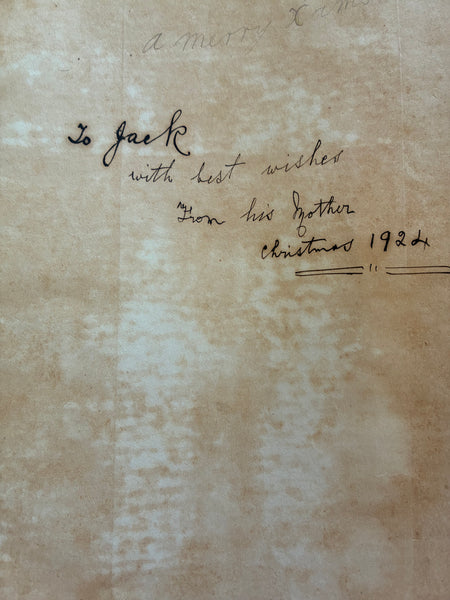 a merry Xmas
To Jack
with best wishes
From his Mother
Christmas 1924